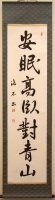 安眠高臥對青山